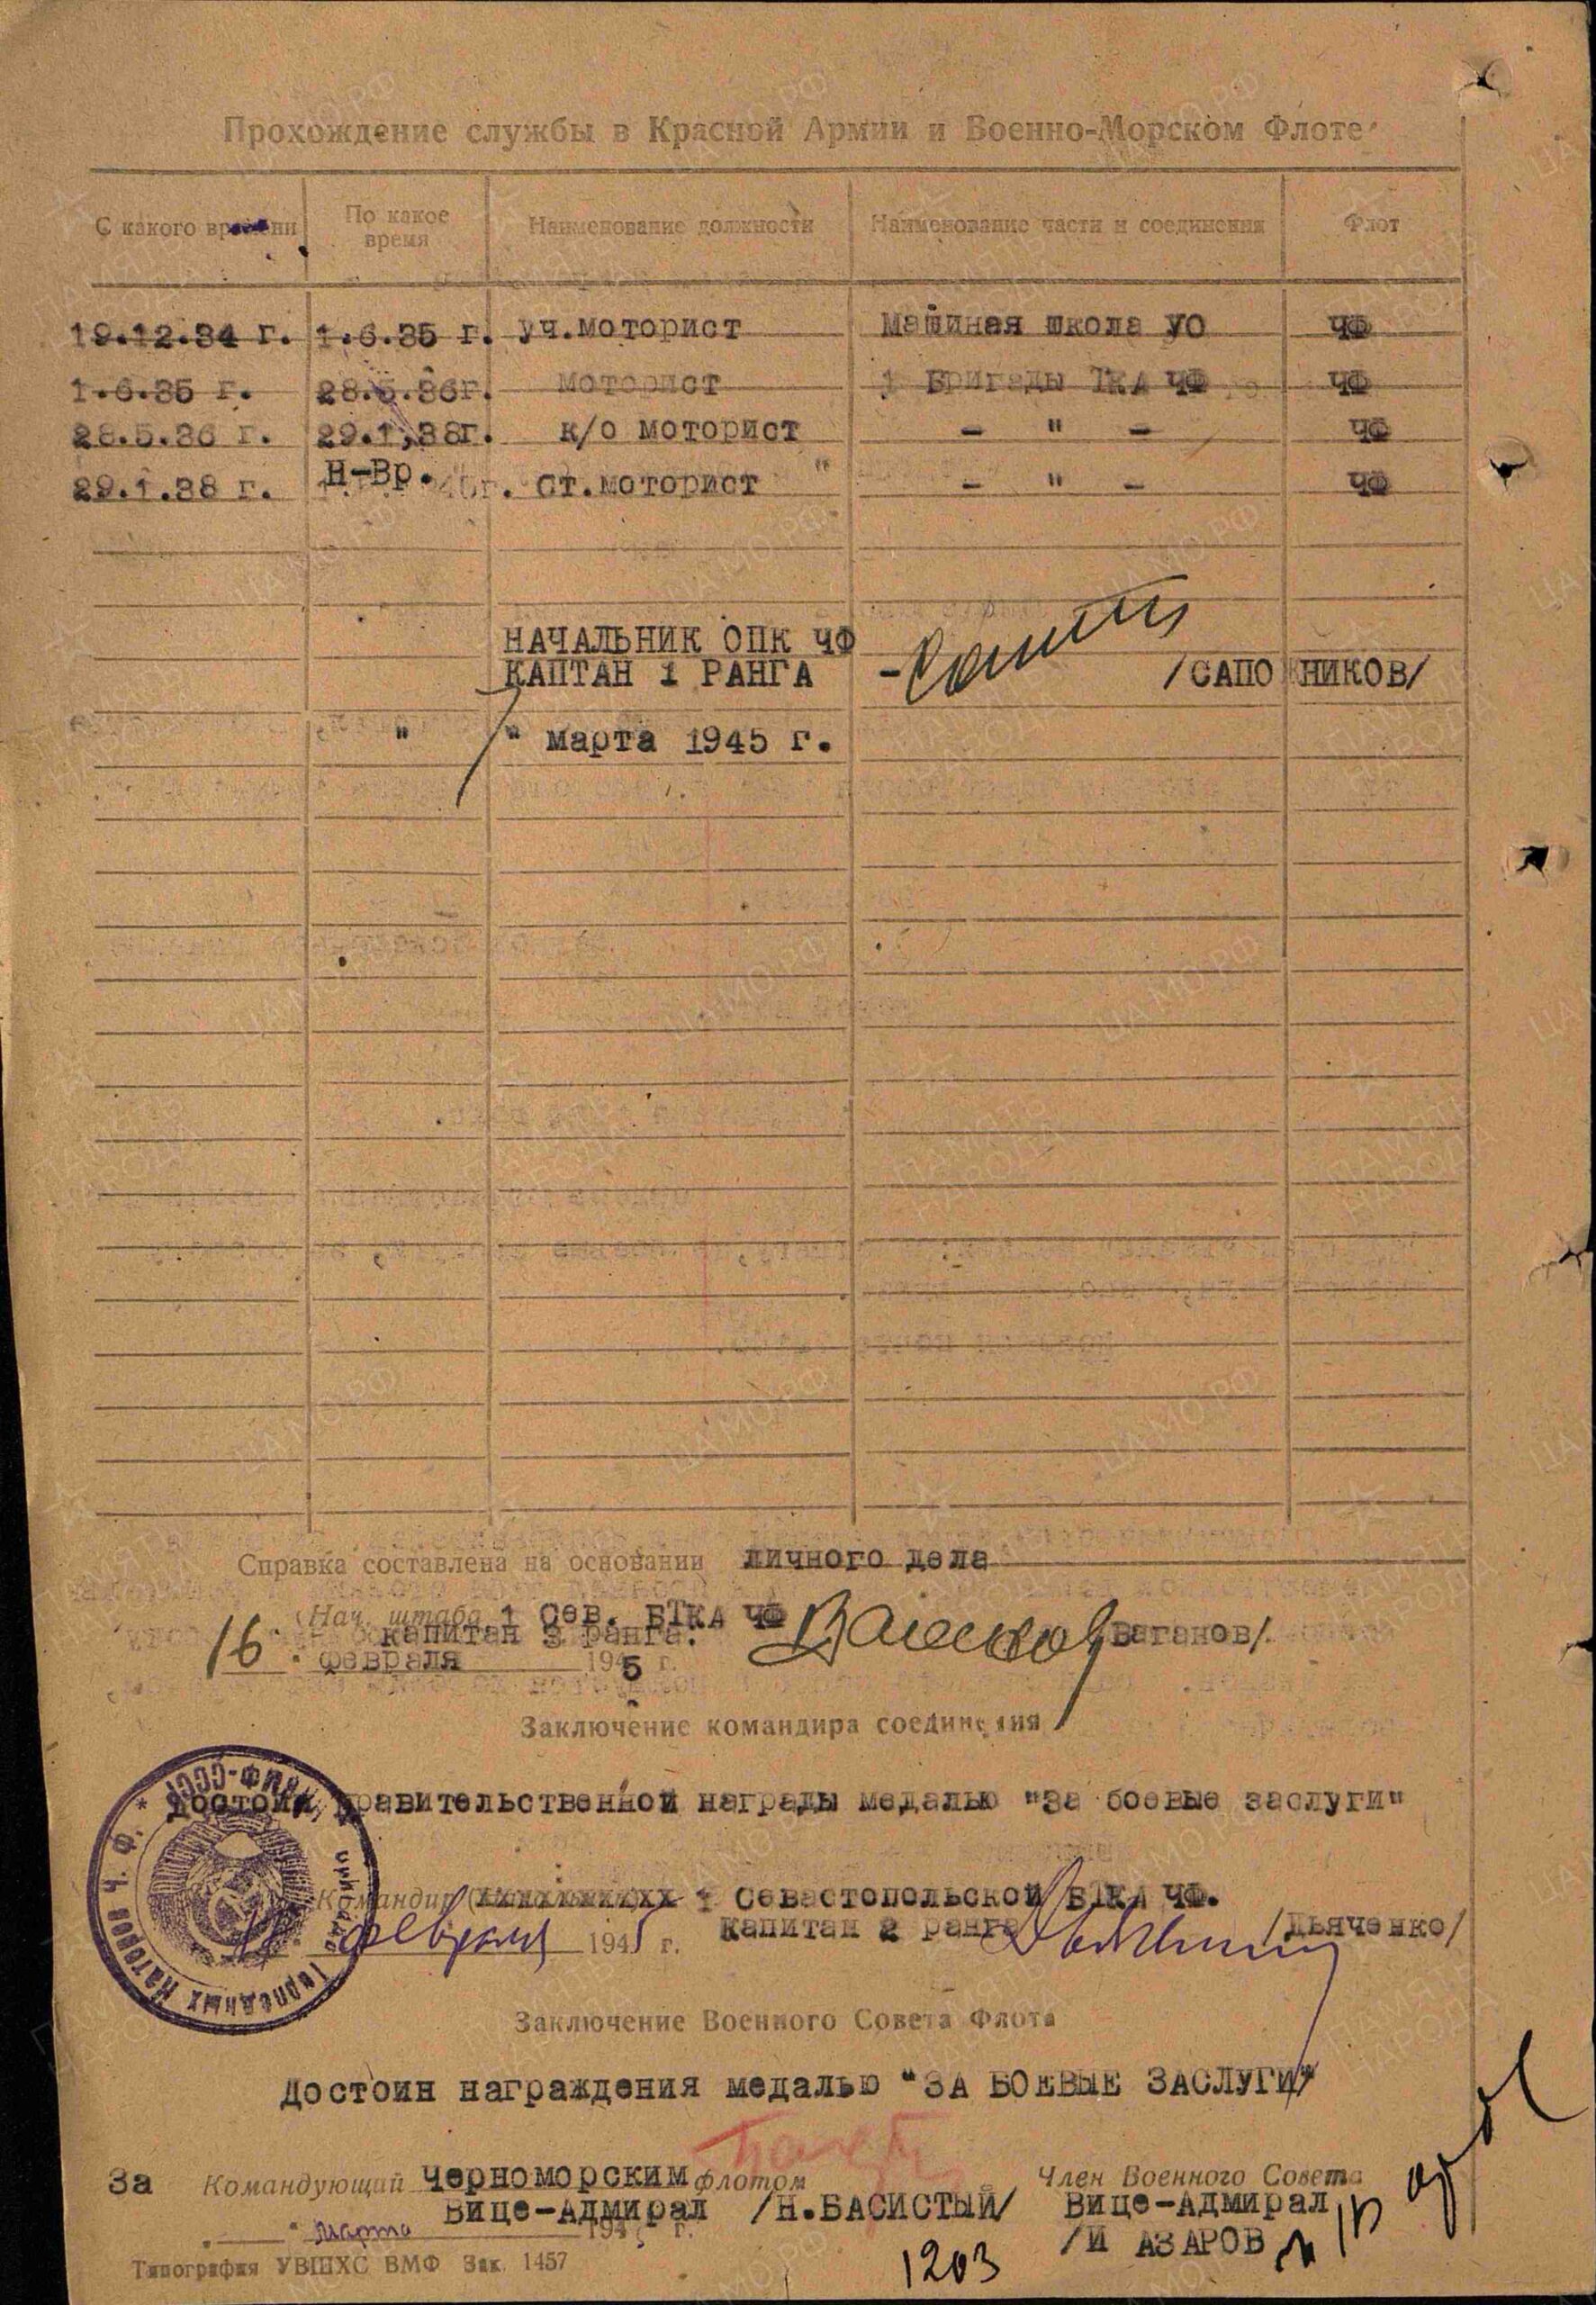 Прохождение службы в Красной Армии и Военно-Морском Флоте
С какого времени По какое время Наименование должности Наименование части и соединения Флот
19.12.34 г. 1.6.35 г. уч.моторист Машиная школа УО ЧФ
1.6.35 г. 28.5.36г. моторист 1 Бригады ТКА ЧФ ЧФ
28.5.36 г. 29.1.38г. к/о моторист - " - ЧФ
29.1.38 г. н-вр. ст.моторист - " - ЧФ
НАЧАЛЬНИК ОПК ЧФ
КАПТАН 1 РАНГА - /САПО НИКОВ/
" " марта 1945 г.
Справка составлена на основании личного дела
Нач. штаба 1 Сев. БТКА ЧФ
капитан 3 ранга. Ваганов/.
16 февраля 1945 г.
Заключение командира соединения
достоин правительственной награды медалью "За боевые заслуги"
Командир 1 Севастопольской БТКА ЧФ.
Капитан 2 ранга /Дьяченко/
февраля 1945 г.
Заключение Военного Совета Флота
Достоин награждения медалью "ЗА БОЕВЫЕ ЗАСЛУГИ"
За Командующий Черноморским флотом Член Военного Совета
Вице-Адмирал /Н.БАСИСТЫЙ/ Вице-Адмирал
марта 1945 г. /И АЗАРОВ
Типография УВШХС ВМФ Зак. 1457
1203
Торпедных Катеров Ч.Ф. * НКВМФ-СССР
ПАМЯТЬ НАРОДА
ЦА МО РФ